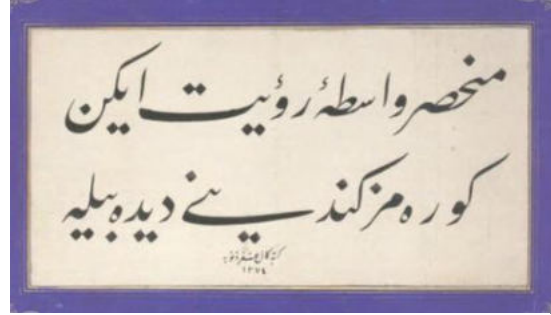 منحصر واسطهٔ رؤیت ایکن
کوره مز کندینی دیده بیله
۱۳۷٤